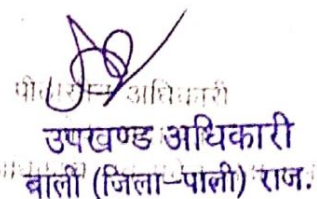 पीठासीन अधिकारी
उपखण्ड अधिकारी
बाली (जिला-पाली) राज.